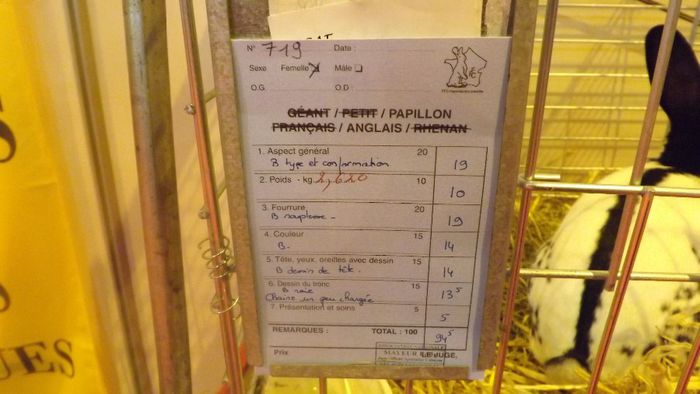 N° 719 Date :
Sexe Femelle Mâle
O.G O.D :
GÉANT / PETIT / PAPILLON
FRANÇAIS / ANGLAIS / RHENAN
1. Aspect général 20
B type et conformation 19
2. Poids - kg 2,620 10 10
3. Fourrure 20
B souplesse - 19
4. Couleur 15
B. 14
5. Tête, yeux, oreilles avec dessin 15
B dessin de tête. 14
6. Dessin du tronc 15
B raie
Chaine un peu chargée 13⁵
7. Présentation et soins 5 5
REMARQUES : TOTAL : 100 94⁵
Prix LE JUGE,
MAYEUR
UES